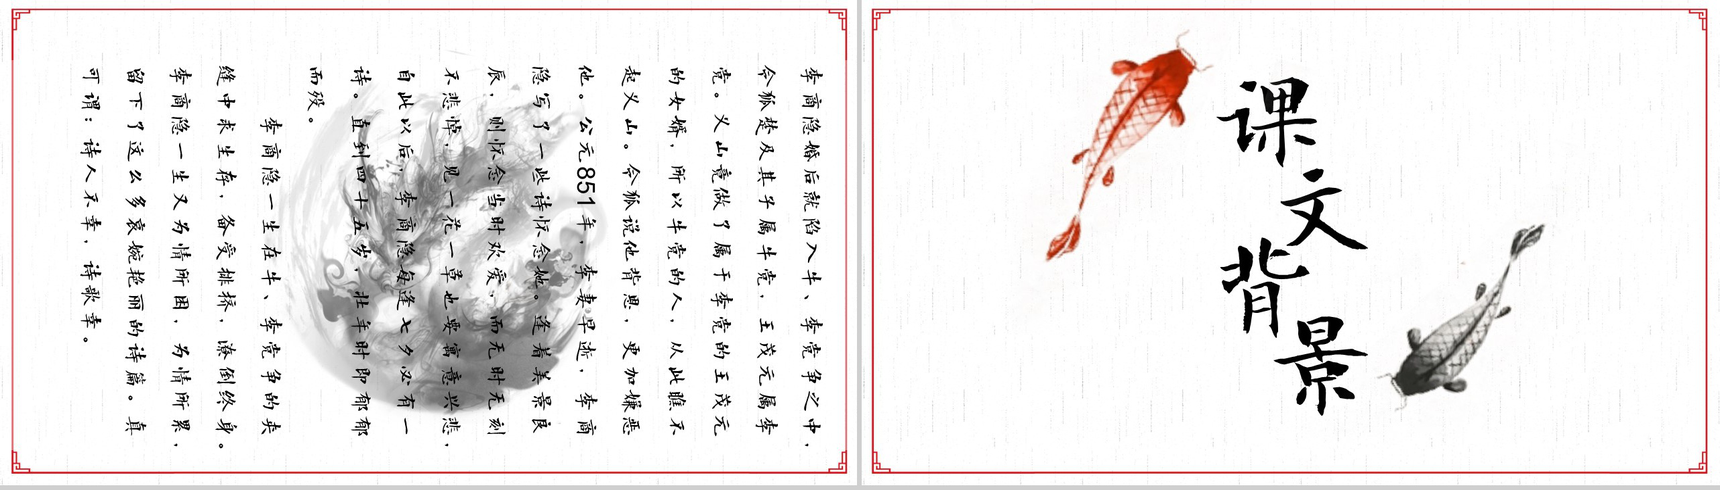 李商隐婚后就陷入牛、李党争之中，
令狐楚及其子属牛党，王茂元属李
党。义山竟做了属于李党的王茂元
的女婿，所以牛党的人，从此瞧不
起义山。令狐说他背恩，更加嫌恶
他。公元851年，李妻早逝，李商
隐写了一些诗怀念她。逢着美景良
辰，则怀念当时欢爱，而无时无刻
不悲悼，见一花一草也要寓意兴悲，
自此以后，李商隐每逢七夕必有一
诗。直到四十五岁，壮年时即郁郁
而殁。
李商隐一生在牛、李党争的夹
缝中求生存，备受排挤，潦倒终身。
李商隐一生又为情所困，为情所累，
留下了这么多哀婉艳丽的诗篇。真
可谓：诗人不幸，诗歌幸。
课文背景